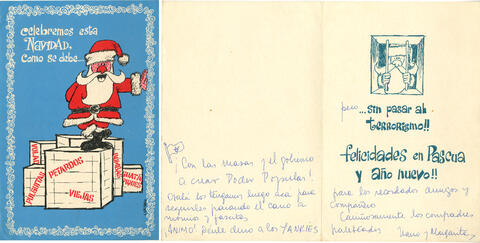 Celebremos esta
NAVIDAD,
Como se debe...
VOLADORES
PETARDOS
MATA
SUEGRAS
POLVORITAS
VIEJAS
pero
...sin pasar al
terrorismo!!
felicidades en Pascua
y año nuevo!!
¡Con las masas y el gobierno
a crear Poder Popular!
Ojalá los tengamos luego acá para
seguirles parando el carro a
momios y fascistas
¡ANIMO! Denle duro a los YANKIES
para los recordados amigos y
Compañeros
Cariñosamente los compadres
Nano y Margarita